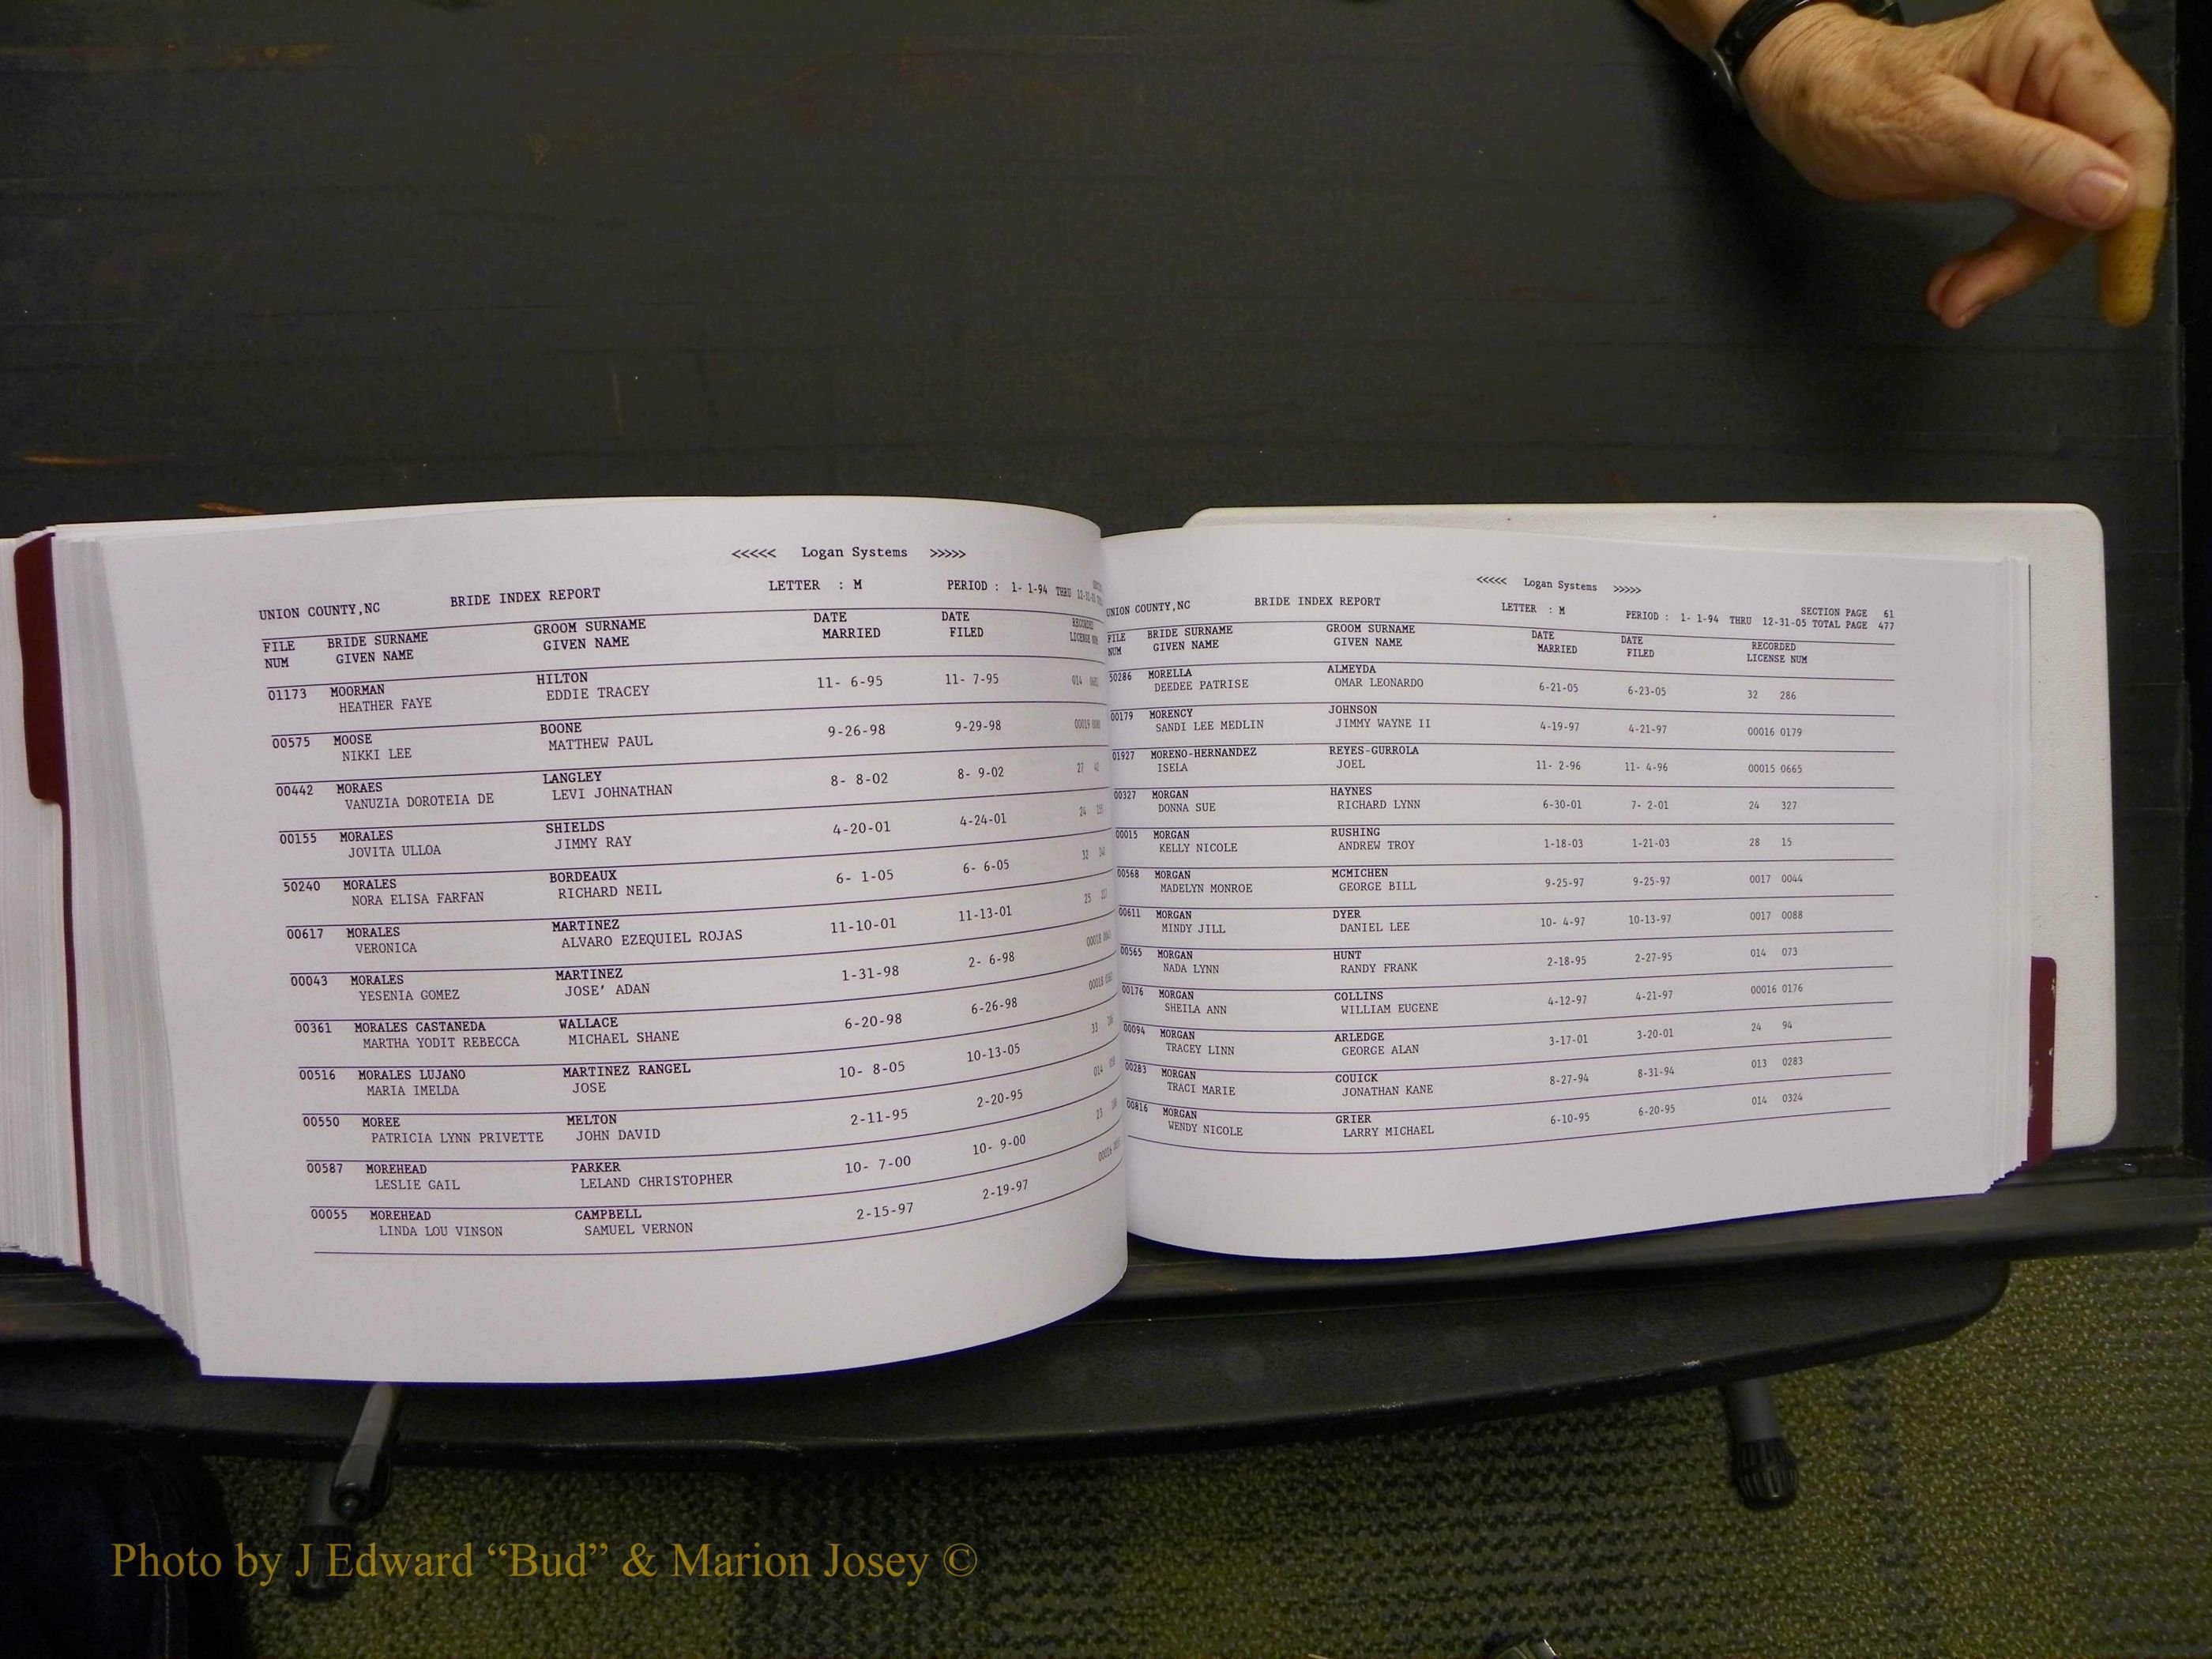 <<<<< Logan Systems >>>>>
UNION COUNTY,NC BRIDE INDEX REPORT LETTER : M PERIOD : 1- 1-94 THRU
FILE BRIDE SURNAME GROOM SURNAME DATE DATE RECORDED
NUM GIVEN NAME GIVEN NAME MARRIED FILED LICENSE NUM
01173 MOORMAN HILTON 11- 6-95 11- 7-95 014
HEATHER FAYE EDDIE TRACEY
00575 MOOSE BOONE 9-26-98 9-29-98 00019
NIKKI LEE MATTHEW PAUL
00442 MORAES LANGLEY 8- 8-02 8- 9-02 27
VANUZIA DOROTEIA DE LEVI JOHNATHAN
00155 MORALES SHIELDS 4-20-01 4-24-01 24
JOVITA ULLOA JIMMY RAY
50240 MORALES BORDEAUX 6- 1-05 6- 6-05 32
NORA ELISA FARFAN RICHARD NEIL
00617 MORALES MARTINEZ 11-10-01 11-13-01 25
VERONICA ALVARO EZEQUIEL ROJAS
00043 MORALES MARTINEZ 1-31-98 2- 6-98 00018
YESENIA GOMEZ JOSE' ADAN
00361 MORALES CASTANEDA WALLACE 6-20-98 6-26-98 00018
MARTHA YODIT REBECCA MICHAEL SHANE
00516 MORALES LUJANO MARTINEZ RANGEL 10- 8-05 10-13-05 33
MARIA IMELDA JOSE
00550 MOREE MELTON 2-11-95 2-20-95 014
PATRICIA LYNN PRIVETTE JOHN DAVID
00587 MOREHEAD PARKER 10- 7-00 10- 9-00 23
LESLIE GAIL LELAND CHRISTOPHER
00055 MOREHEAD CAMPBELL 2-15-97 2-19-97 00016
LINDA LOU VINSON SAMUEL VERNON
<<<<< Logan Systems >>>>>
SECTION PAGE 61
UNION COUNTY,NC BRIDE INDEX REPORT LETTER : M PERIOD : 1- 1-94 THRU 12-31-05 TOTAL PAGE 477
FILE BRIDE SURNAME GROOM SURNAME DATE DATE RECORDED
NUM GIVEN NAME GIVEN NAME MARRIED FILED LICENSE NUM
50286 MORELLA ALMEYDA 6-21-05 6-23-05 32 286
DEEDEE PATRISE OMAR LEONARDO
00179 MORENCY JOHNSON 4-19-97 4-21-97 00016 0179
SANDI LEE MEDLIN JIMMY WAYNE II
01927 MORENO-HERNANDEZ REYES-GURROLA 11- 2-96 11- 4-96 00015 0665
ISELA JOEL
00327 MORGAN HAYNES 6-30-01 7- 2-01 24 327
DONNA SUE RICHARD LYNN
00015 MORGAN RUSHING 1-18-03 1-21-03 28 15
KELLY NICOLE ANDREW TROY
00568 MORGAN MCMICHEN 9-25-97 9-25-97 0017 0044
MADELYN MONROE GEORGE BILL
00611 MORGAN DYER 10- 4-97 10-13-97 0017 0088
MINDY JILL DANIEL LEE
00565 MORGAN HUNT 2-18-95 2-27-95 014 073
NADA LYNN RANDY FRANK
00176 MORGAN COLLINS 4-12-97 4-21-97 00016 0176
SHEILA ANN WILLIAM EUGENE
00094 MORGAN ARLEDGE 3-17-01 3-20-01 24 94
TRACEY LINN GEORGE ALAN
00283 MORGAN COUICK 8-27-94 8-31-94 013 0283
TRACI MARIE JONATHAN KANE
00816 MORGAN GRIER 6-10-95 6-20-95 014 0324
WENDY NICOLE LARRY MICHAEL
Photo by J Edward “Bud” & Marion Josey ©